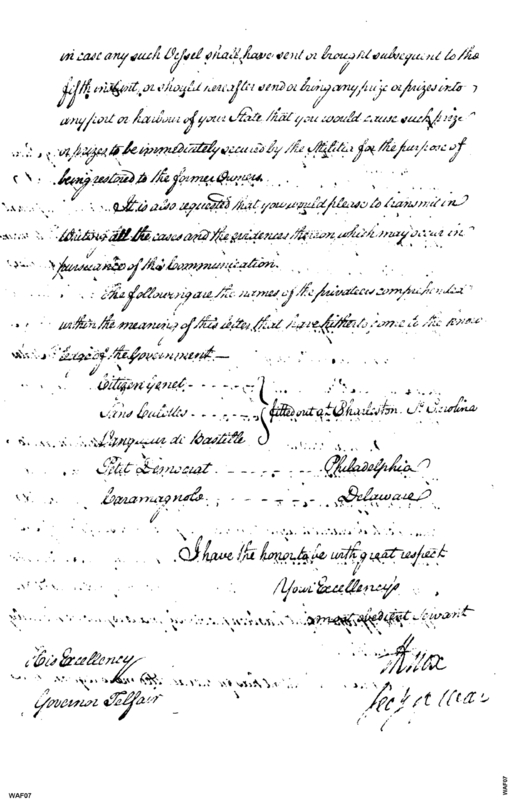 in case any such Vessel shall have sent or brought subsequent to the
fifth instant, or should hereafter send or bring any prize or prizes into
any port or harbour of your State that you would cause such prize
or prizes to be immediately secured by the Militia for the purpose of
being restored to the former Owners.
It is also requested that you would please to transmit in
all the cases and the evidences thereon which may occur in
pursuance of this Communication.
The following are the names of the privateers comprehended
within the meaning of this letter, that have hitherto come to the know
ledge of the Government —
Citizen Genet - - - - -
Sans Culottes - - - - - fitted out at Charleston So Carolina
Vanqueur de Bastille
Petit Democrat - - - - - Philadelphia
Caramagnole - - - - - Delaware
I have the honor to be with great respect
Your Excellency's
most obedient Servant
HKnox
Secy of War
His Excellency
Governor Telfair
WAF07
WAF07